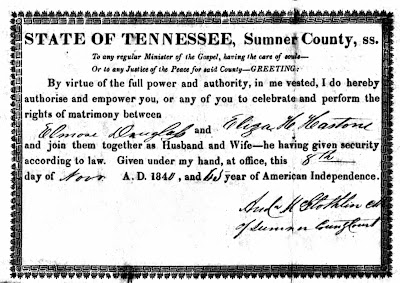 STATE OF TENNESSEE, Sumner County, ss.
To any regular Minister of the Gospel, having the care of souls—
Or to any Justice of the Peace for said County—GREETING:
By virtue of the full power and authority, in me vested, I do hereby
authorise and empower you, or any of you to celebrate and perform the
rights of matrimony between
Elmore Douglass and Eliza H
and join them together as Husband and Wife—he having given security
according to law. Given under my hand, at office, this 8th
day of Novr A. D. 1840, and 65 year of American Independence.
of Sumner County Court